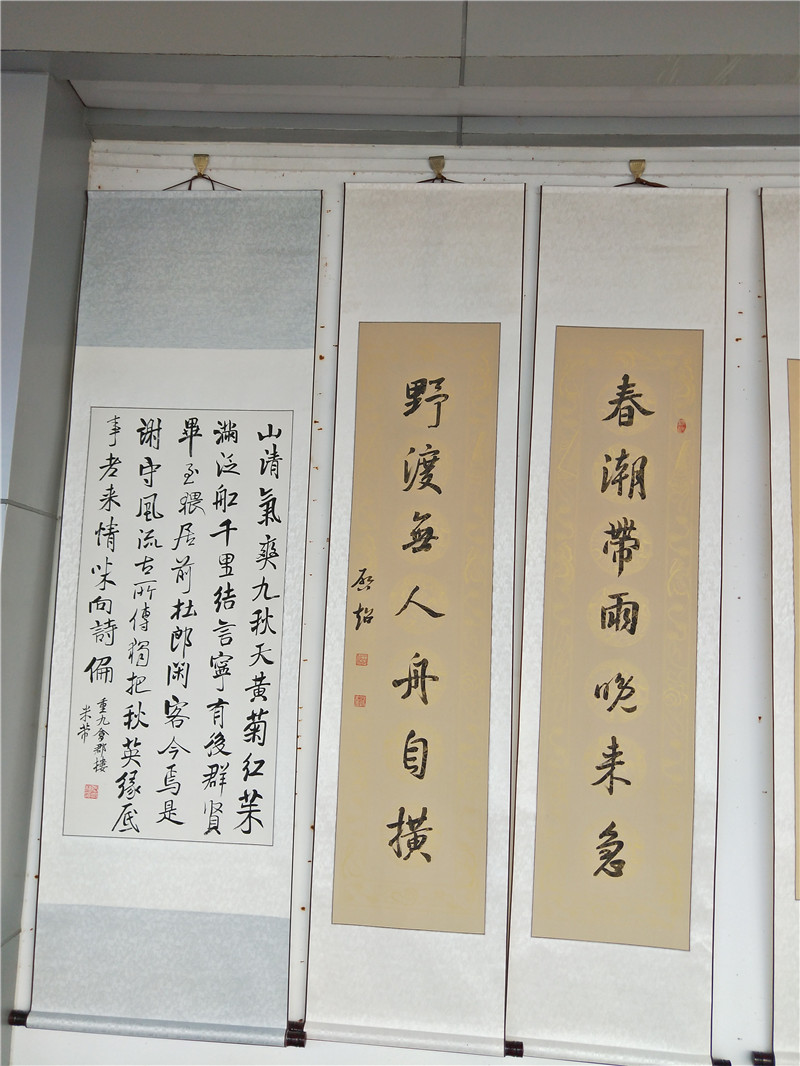 春潮帶雨晚来急
野渡無人舟自横
山清氣爽九秋天黄菊红茱
滿泛舩千里结言寧有後群贤
畢至猥居前杜郎閑客今焉是
謝守風流古所傳獨把秋英缘底
事老来情味向詩偏
重九會郡樓
米芾